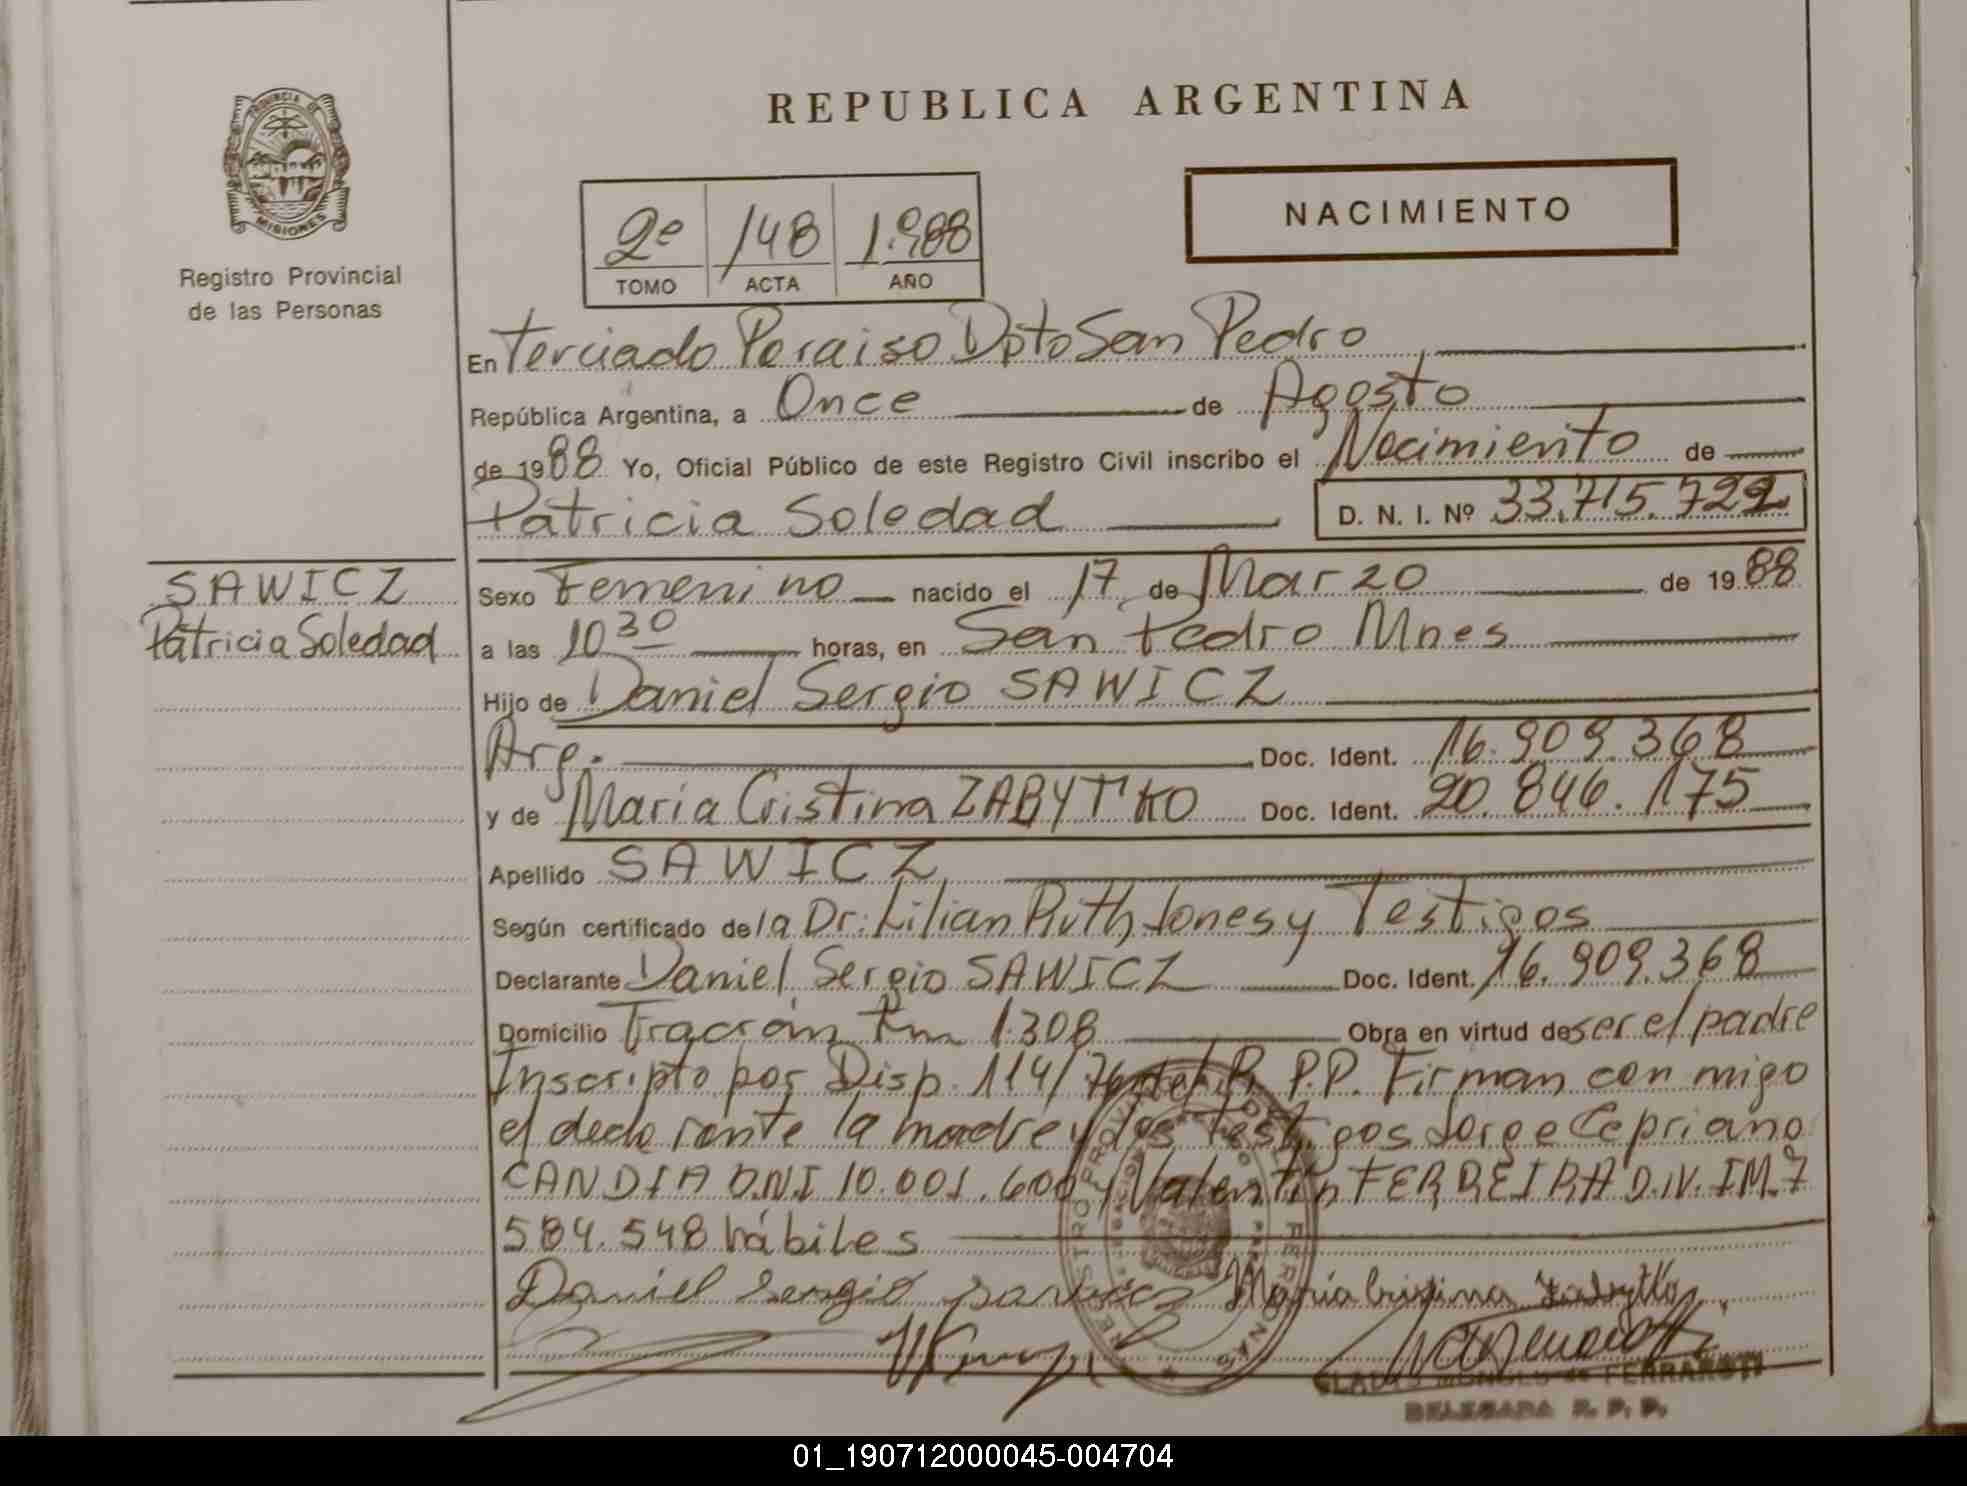 REPUBLICA ARGENTINA
PROVINCIA DE
MISIONES
Registro Provincial
de las Personas
2º 148 1.988
TOMO ACTA AÑO
NACIMIENTO
En Terciado Paraiso Dpto San Pedro
República Argentina, a Once de Agosto
de 1988 Yo, Oficial Público de este Registro Civil inscribo el Nacimiento de
Patricia Soledad D. N. I. Nº 33.715.722
SAWICZ
Patricia Soledad
Sexo Femenino nacido el 17 de Marzo de 1988
a las 10 30 horas, en San Pedro Mnes
Hijo de Daniel Sergio SAWICZ
Arg. Doc. Ident. 16.909.368
y de María Cristina ZABYTKO Doc. Ident. 20.846.175
Apellido SAWICZ
Según certificado de la Dr. Lilian Ruth Jones y Testigos
Declarante Daniel Sergio SAWICZ Doc. Ident. 16.909.368
Domicilio Tracrán Km 1.308 Obra en virtud de ser el padre
Inscripto por Disp. 114/76 del R. P.P. Firman con migo
el declarante la madre y los testigos Jorge Cepriano
CANDIA D.N.I 10.001.600 y Valentin FERREIRA D.N.I M.7
584.548 hábiles
Daniel Sergio Sawicz María Cristina Zabytko
FERRAROTTI
DELEGADA R. P. P.
01_190712000045-004704